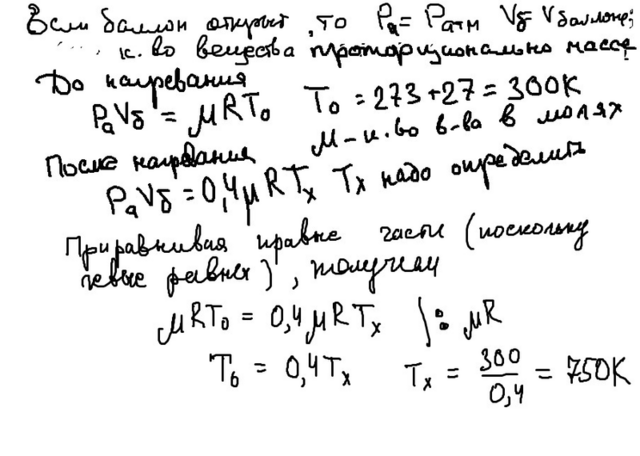 Если баллон открыт, то Pа = Pатм Vб Vбаллона;
к. во вещества пропорционально массе
До нагревания
PаVб = μRT₀ T₀ = 273 + 27 = 300К
μ – к. во в-ва в молях
После нагревания
PаVб = 0,4μRTₓ Tₓ надо определить
Приравнивая правые части (поскольку
левые равны), получаем
μRT₀ = 0,4μRTₓ | : μR
T₀ = 0,4Tₓ Tₓ = 300/0,4 = 750К